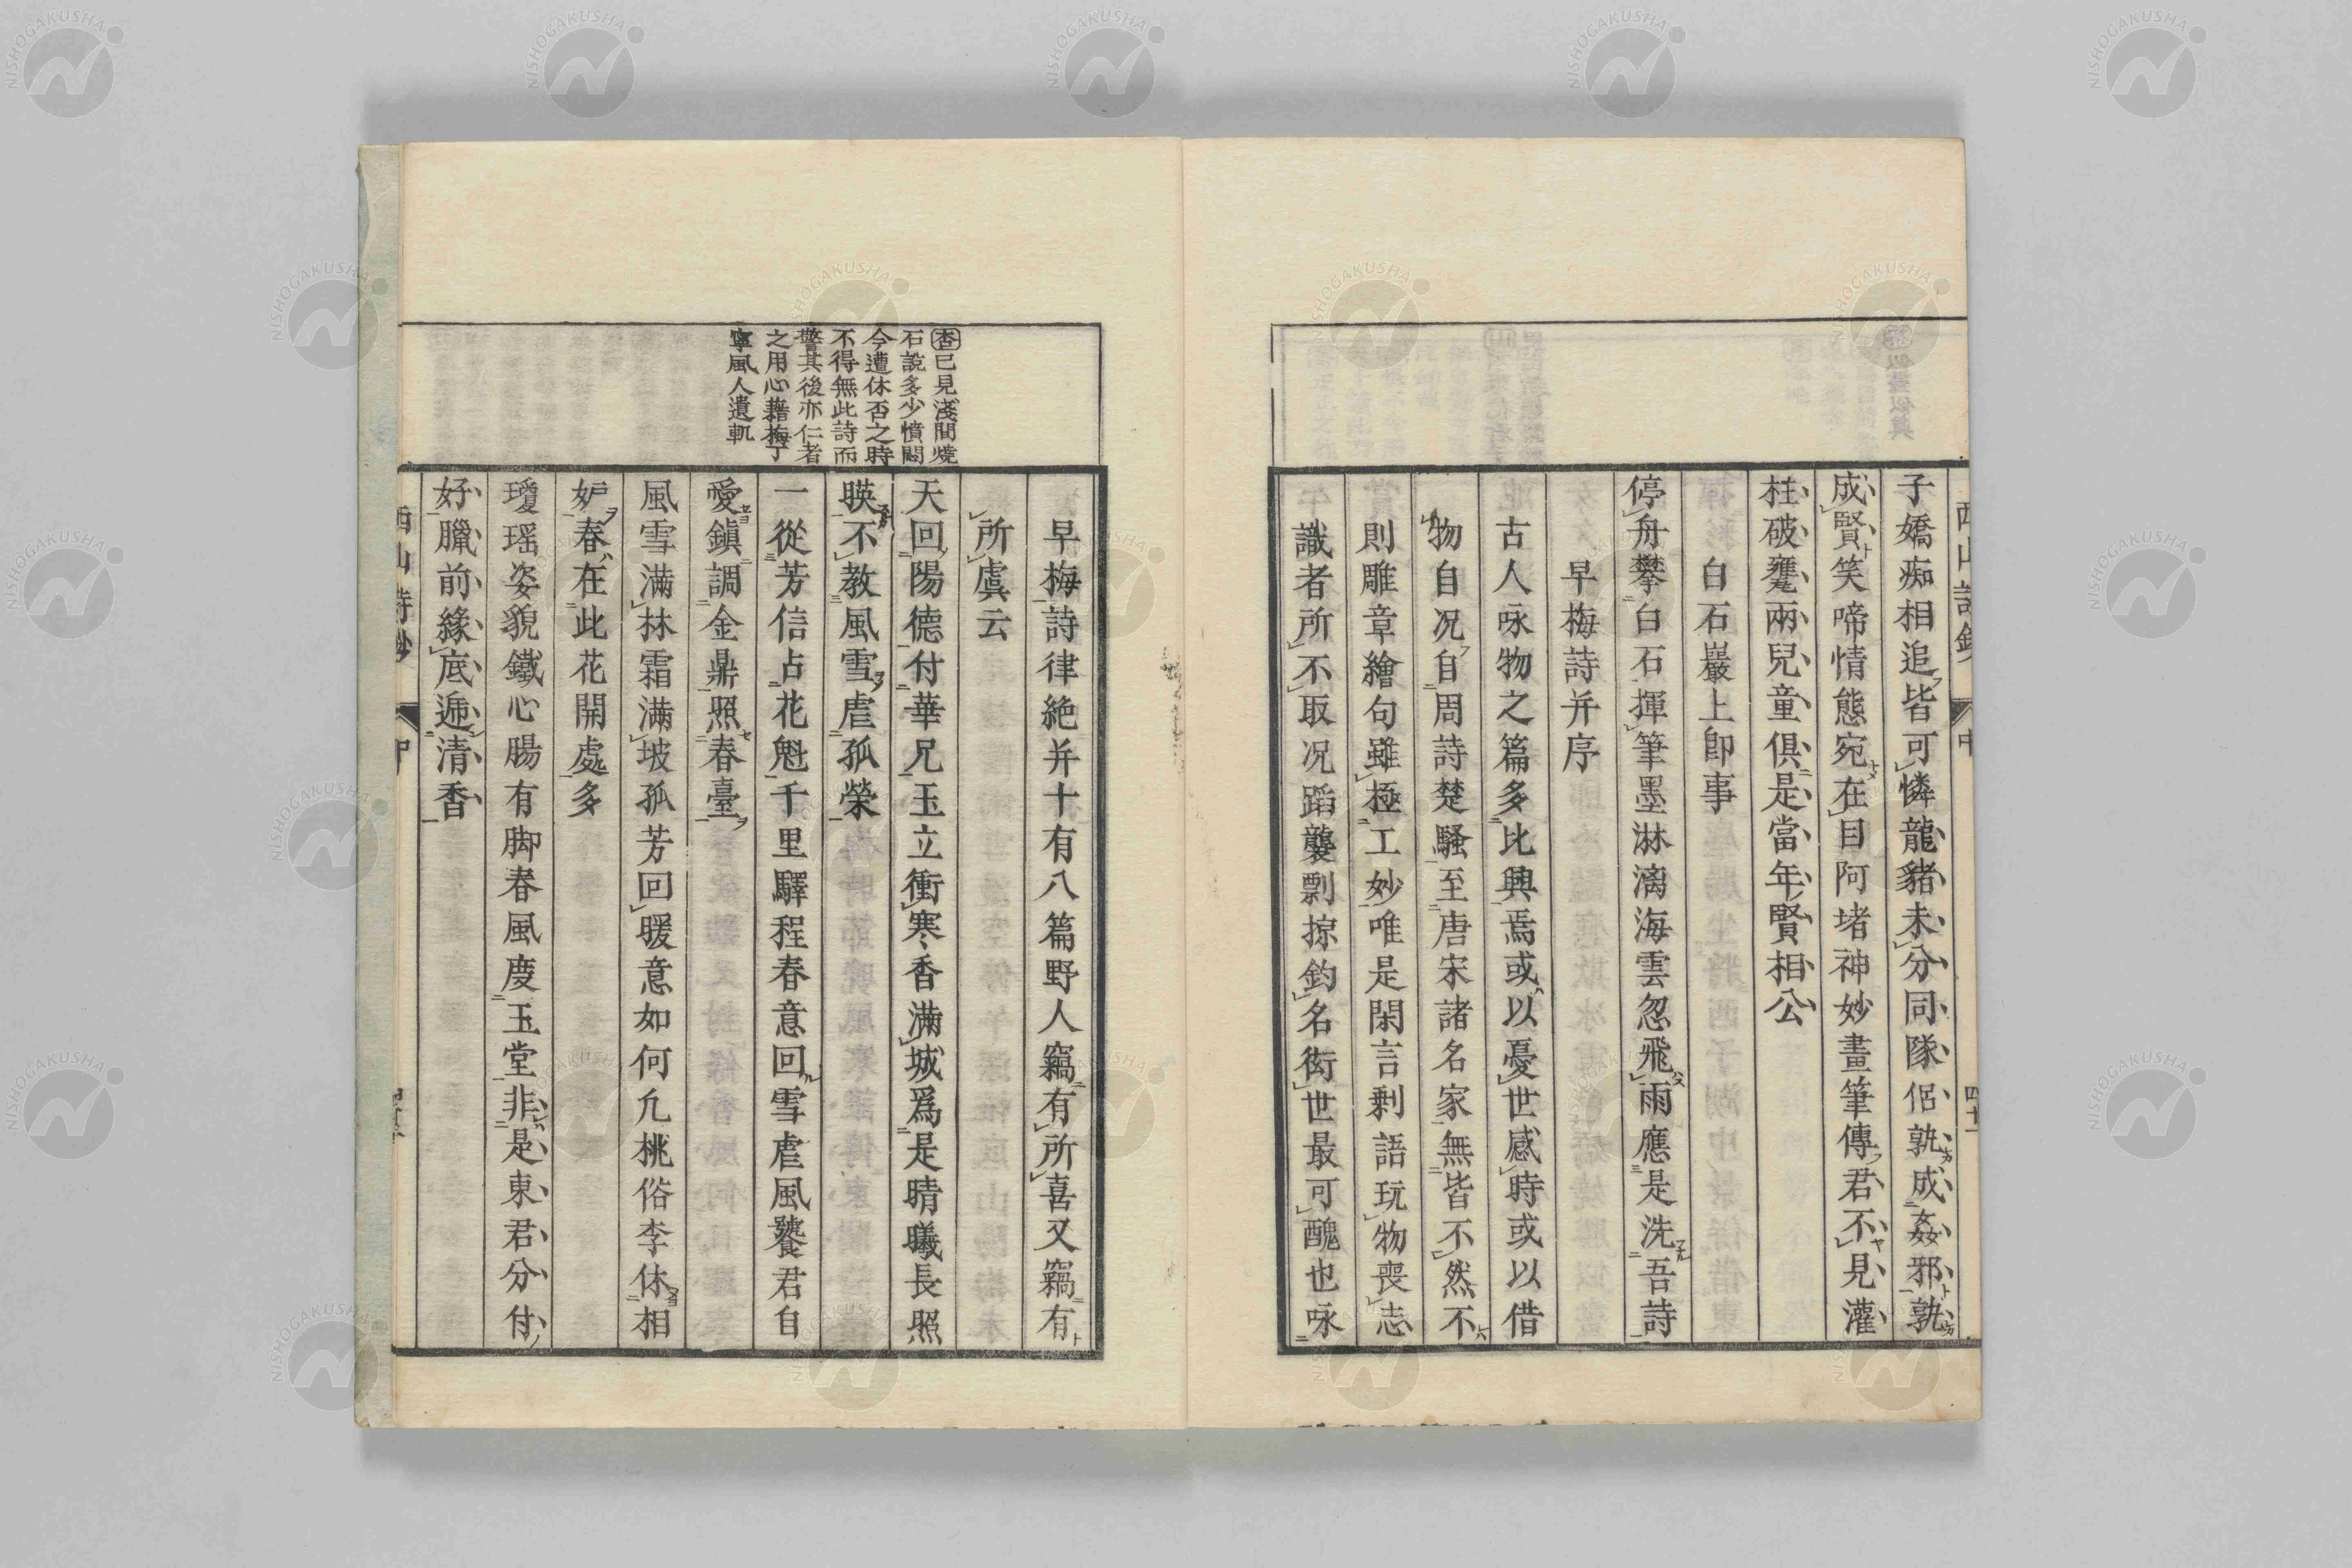 子嬌痴相追皆可憐龍豬未分同隊侶孰成姦邪孰
成賢笑啼情態宛在目阿堵神妙畫筆傳君不見灌
柱破甕兩兒童俱是當年賢相公
白石巖上卽事
停舟攀白石揮筆墨淋漓海雲忽飛雨應是洗吾詩
早梅詩并序
古人咏物之篇多比興焉或以憂世感時或以借
物自況自周詩楚騷至唐宋諸名家無皆不然不
則雕章繪句雖極工妙唯是閑言剩語玩物喪志
識者所不取况蹈襲剽掠釣名衒世最可醜也咏
早梅詩律絶并十有八篇野人竊有所喜又竊有
所虞云
天回陽德付華兄玉立衝寒香滿城爲是晴曦長照
暎不教風雪虐孤榮
一從芳信占花魁千里驛程春意回雪虐風饕君自
愛鎭調金鼎照春臺
風雪滿林霜滿坡孤芳回暖意如何凢桃俗李休相
妒春在此花開處多
瓊瑶姿貌鐵心腸有脚春風度玉堂非是東君分付
好臘前緣底逓清香
杏已見淺間燒
石說多少憤悶
今遭休否之時
不得無此詩而
警其後亦仁者
之用心藉梅丁
寧風人遺軌
西山詩鈔
中
四十一
NISHOGAKUSHA